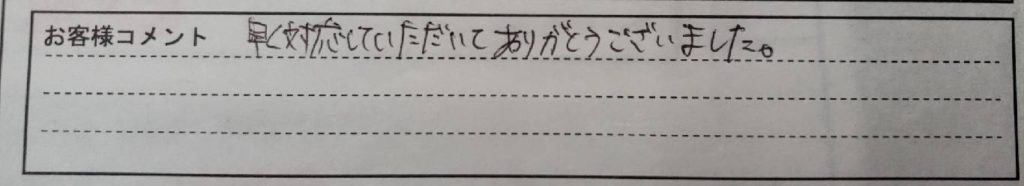 お客様コメント 早く対応していただいてありがとうございました。